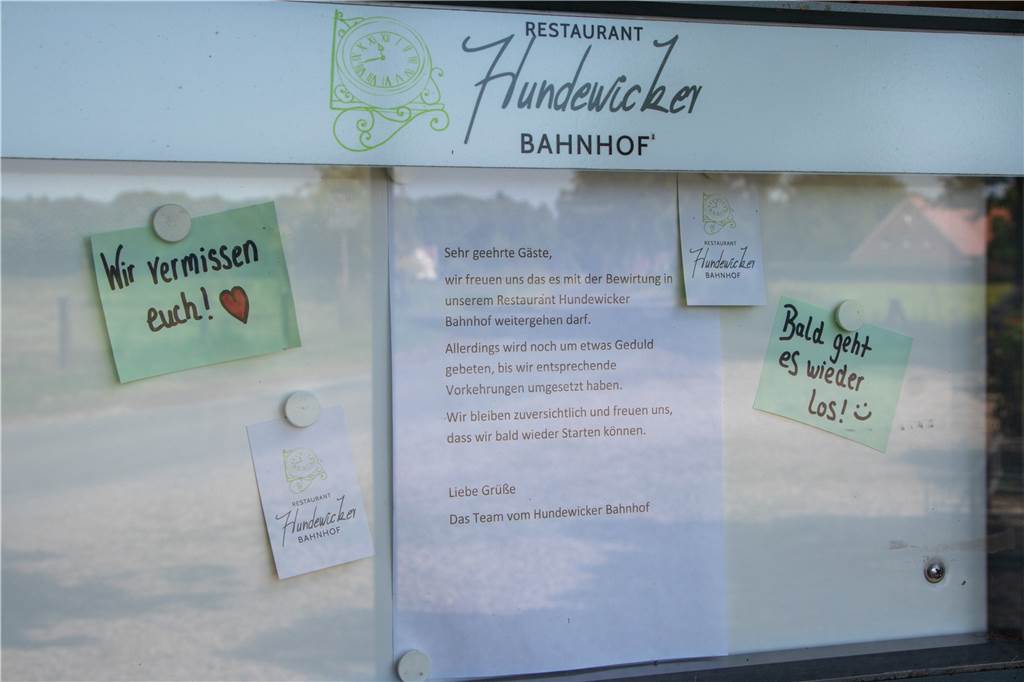 RESTAURANT
Hundewicker
BAHNHOF
Wir vermissen
euch!
Sehr geehrte Gäste,
wir freuen uns das es mit der Bewirtung in
unserem Restaurant Hundewicker
Bahnhof weitergehen darf.
Allerdings wird noch um etwas Geduld
gebeten, bis wir entsprechende
Vorkehrungen umgesetzt haben.
Wir bleiben zuversichtlich und freuen uns,
dass wir bald wieder Starten können.
Liebe Grüße
Das Team vom Hundewicker Bahnhof
RESTAURANT
Hundewicker
BAHNHOF
Bald geht
es wieder
los!
RESTAURANT
Hundewicker
BAHNHOF